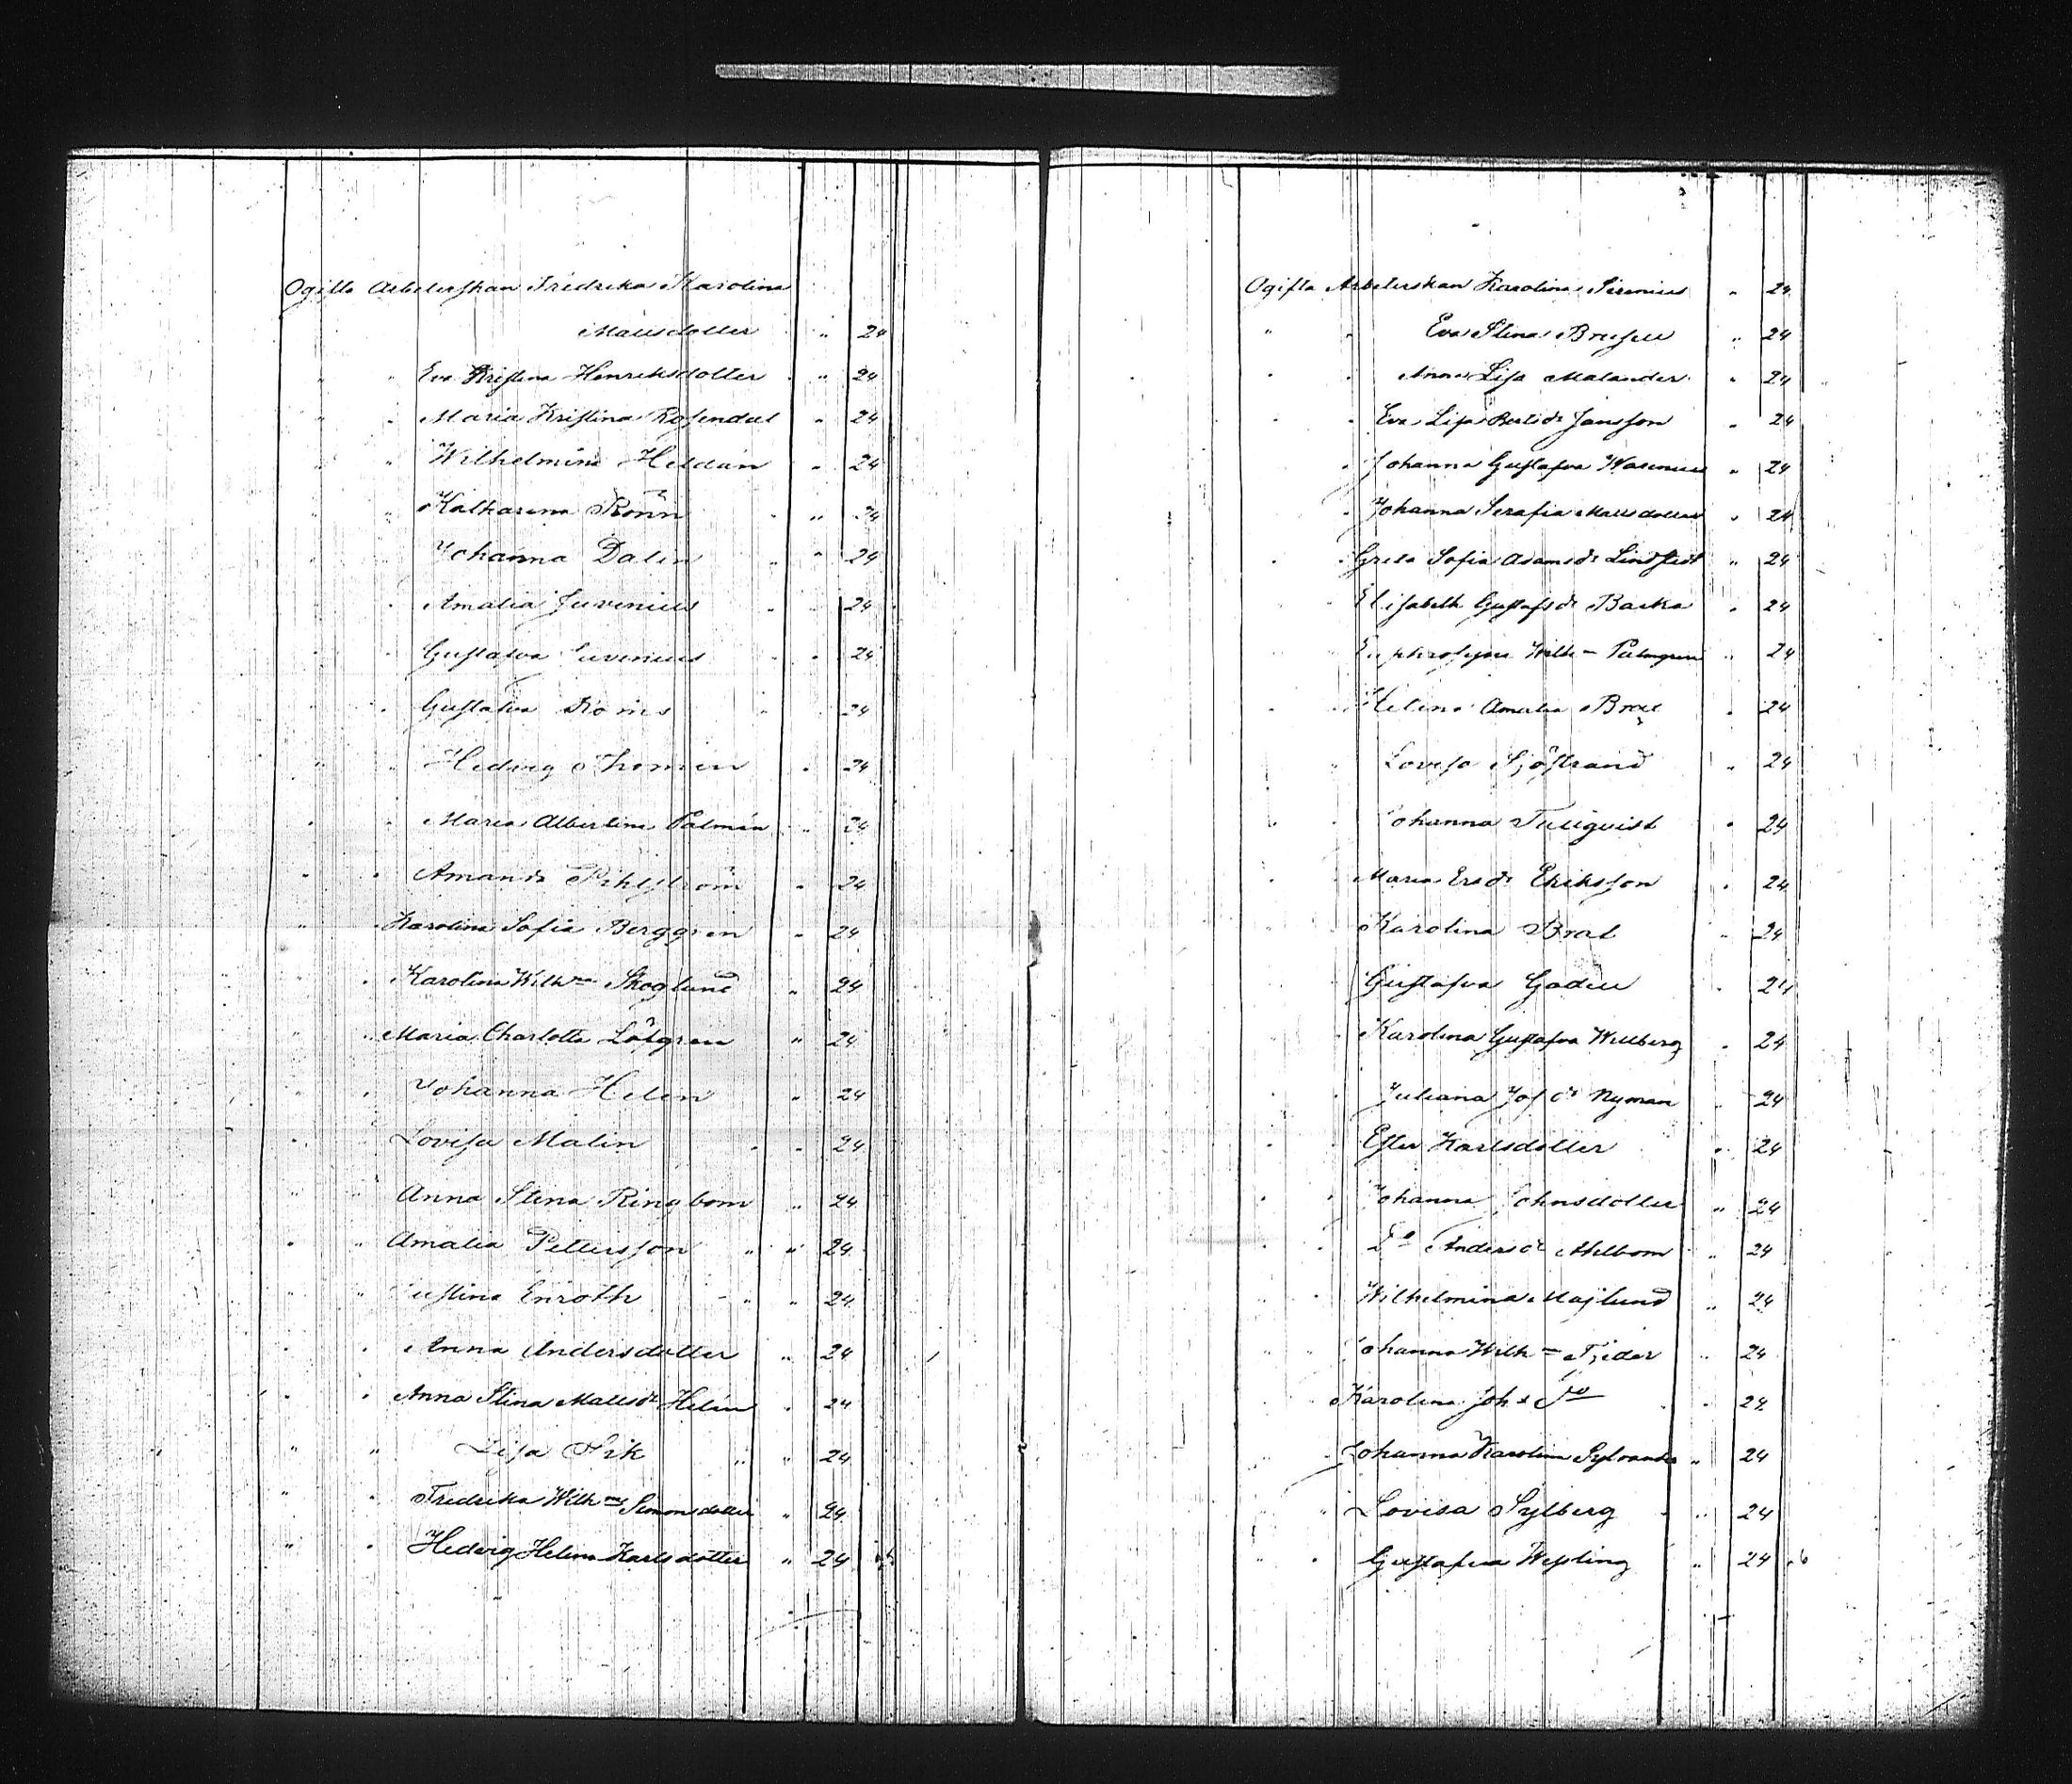 Ogifta Arbeterskan Fredrika Karolina
Mattsdotter " 24
" " Eva Kristina Henriksdotter " 24
" " Maria Kristina Rosendal " 24
" " Wilhelmina Heldán " 24
" " Katharina Rönn " 24
" " Johanna Dalin " 24
" " Amalia Juvenius " 24
" " Gustafva Juvenius " 24
" " Gustafva Roms 24
" " Hedvig Thomén " 24
" " Maria Albertina Palmén " 24
" " Amanda Pihlström " 24
" " Karolina Sofia Berggrén " 24
" " Karolina Wilhma Skoglund " 24
" " Maria Charlotta Löfgren " 24
" " Johanna Helén " 24
" " Lovisa Malin " 24
" " Anna Stina Ringbom " 24
" " Amalia Pettersson " " 24
" " Justina Enroth " " 24
" " Anna Andersdotter " 24
" " Anna Stina Mattsdr Helén " 24
" " Lisa Sik " " 24
" " Fredrika Wilhma Simonsdotter " 24
" " Hedvig Helena Karlsdotter " 24
Ogifta Arbeterskan Karolina Sirenius " 24
" " Eva Stina " 24
" " Anna Lisa Malander " 24
" " Eva Lisa Jansson " 24
" Johanna Gustafva Warenius " 24
" Johanna Serafia Mattsdotter " 24
" " Greta Sofia Adamsdr Lindstedt " 24
" " Elisabeth Gustafsdr Backa " 24
Euphrosyne Wilhma Palmgren " 24
" " Helena Amalia " 24
" Lovisa Sjöstrand " 24
" " Johanna Tullqvist " 24
" Maria Ersdr Eriksson " 24
" " Karolina Brat " 24
" " Gustafva " 24
" " Karolina Gustafva Willberg " 24
" " Juliana Josdr Nyman " 24
" " Ester Karlsdotter " 24
" " Johanna Johnsdotter " 24
" " Do Andersdr Ahlbom " 24
" " Wilhelmina Majlund " 24
" " Johanna Wilhma Fjeder " 24
" " Karolina Joh do " 24
" Johanna Karolina Sylvander " 24
" Lovisa Sylberg " 24
" " Gustafva Wessling " 24